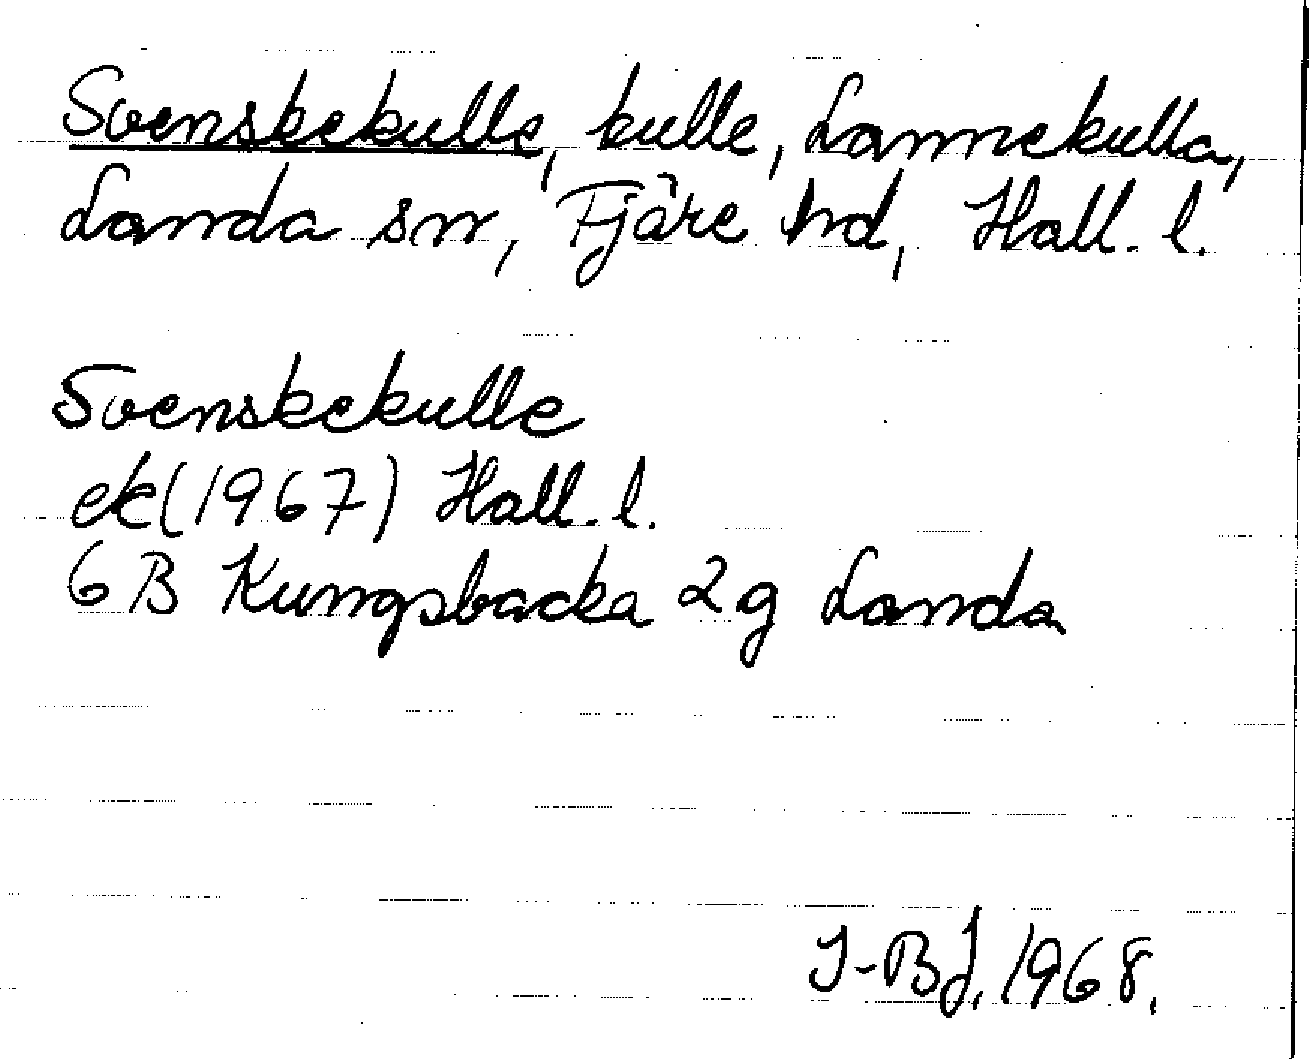 Svenskekulle, kulle, Lannekulla,
Landa sn, Fjäre hd, Hall. l.
Svenskekulle
ek (1967) Hall. l.
6 B Kungsbacka 2 g Landa
I-BJ. 1968.